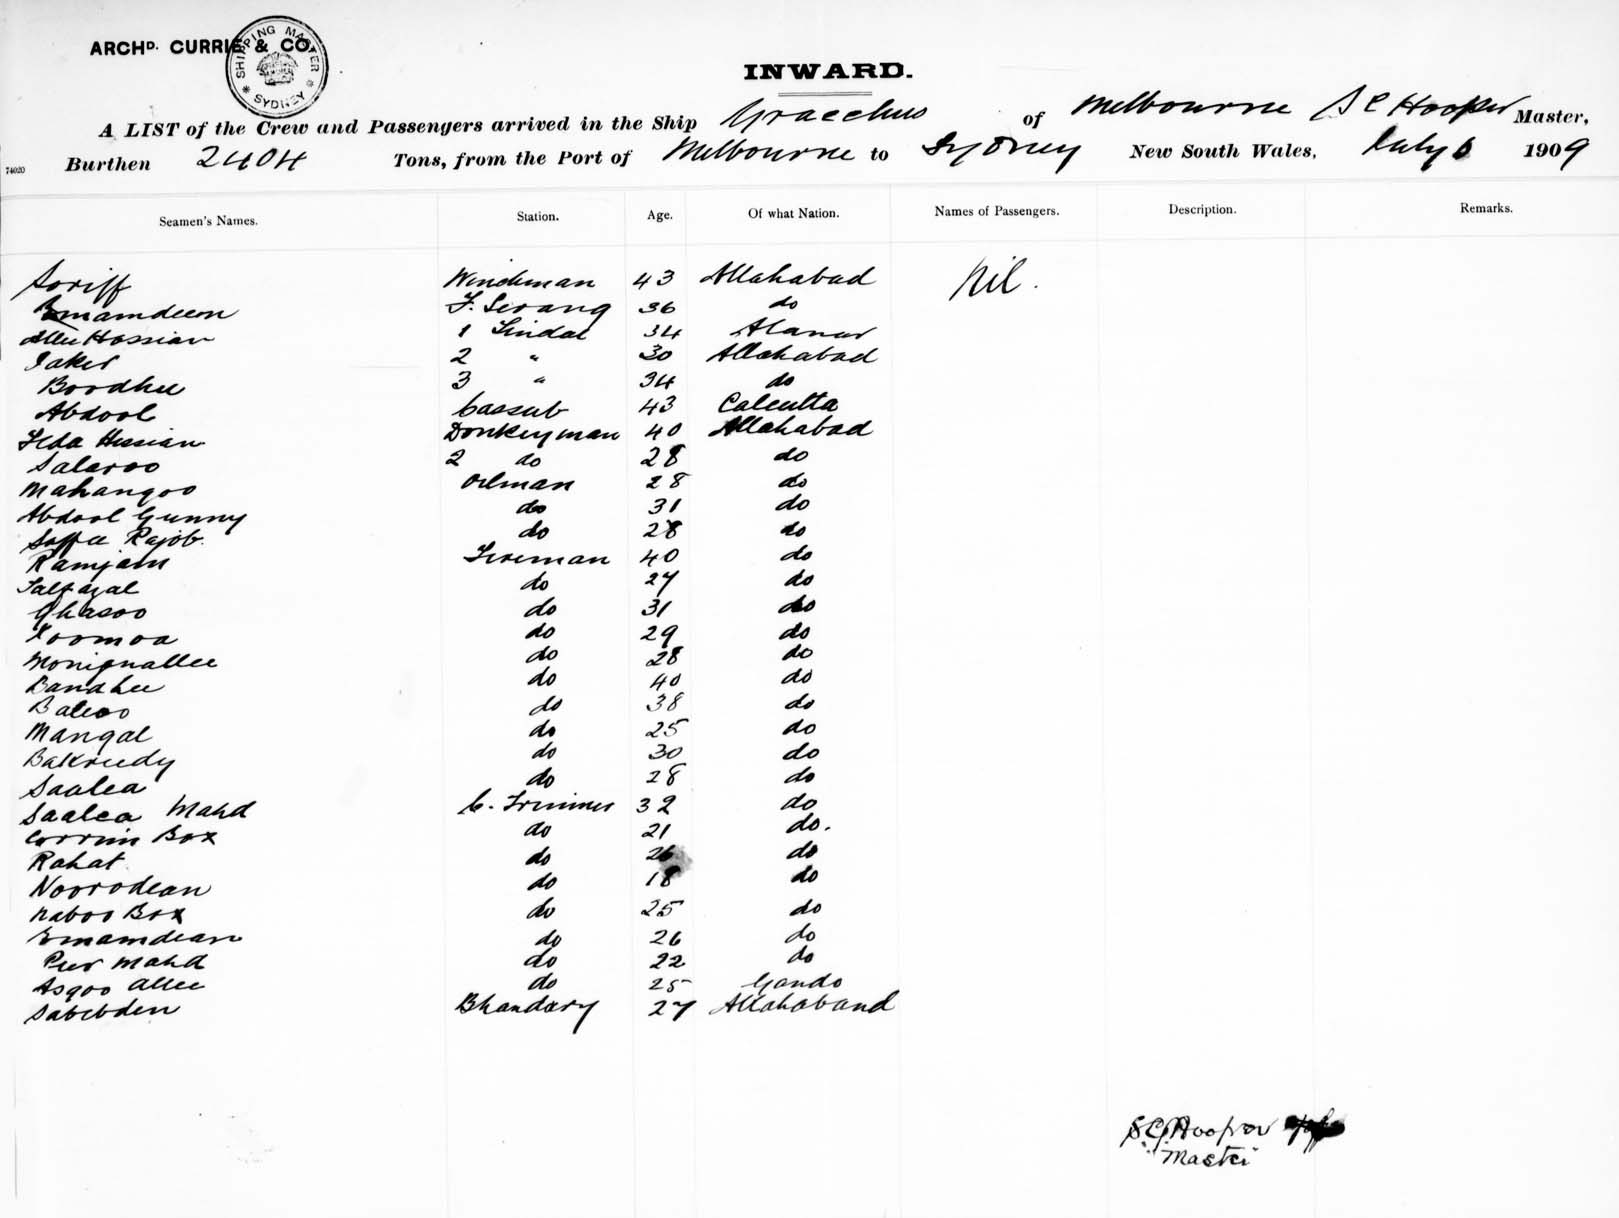 ARCHD. CURRIE & CO.
SHIPPING MASTER SYDNEY
INWARD.
A LIST of the Crew and Passengers arrived in the Ship Gracchus of Melbourne S C Hooper Master,
Burthen 2404 Tons, from the Port of Melbourne to Sydney New South Wales, July 6 1909
74020
Seamen's Names. Station. Age. Of what Nation. Names of Passengers. Description. Remarks.
Soriff Winchman 43 Allahabad Nil.
Emamdeen F. Serang 36 do
Allee Hossian 1 Tindal 34
Jaker 2 " 30 Allahabad
Boodhu 3 " 34 do
Abdool Cassub 43 Calcutta
Feda Hossian Donkeyman 40 Allahabad
Salaroo 2 do 28 do
Mahangoo Oilman 28 do
Abdool Gunny do 31 do
Soffee Rajob. do 28 do
Ramjam Fireman 40 do
Talfazal do 27 do
Ghasoo do 31 do
Koomoa do 29 do
Monignallee do 28 do
Bandhu do 40 do
Batoo do 38 do
Mangal do 25 do
Bakreedy do 30 do
Saalea do 28 do
Saalea Mahd C. Trimmer 32 do
Corrim Box do 21 do.
Rahat do 26 do
Noorodean do 18 do
Naboo Box do 25 do
Emamdean do 26 do
Peer Mahd do 22 do
Asgoo Allee do 25 Gando
Sabebden Bhandary 27 Allahaband
S C Hooper
Master